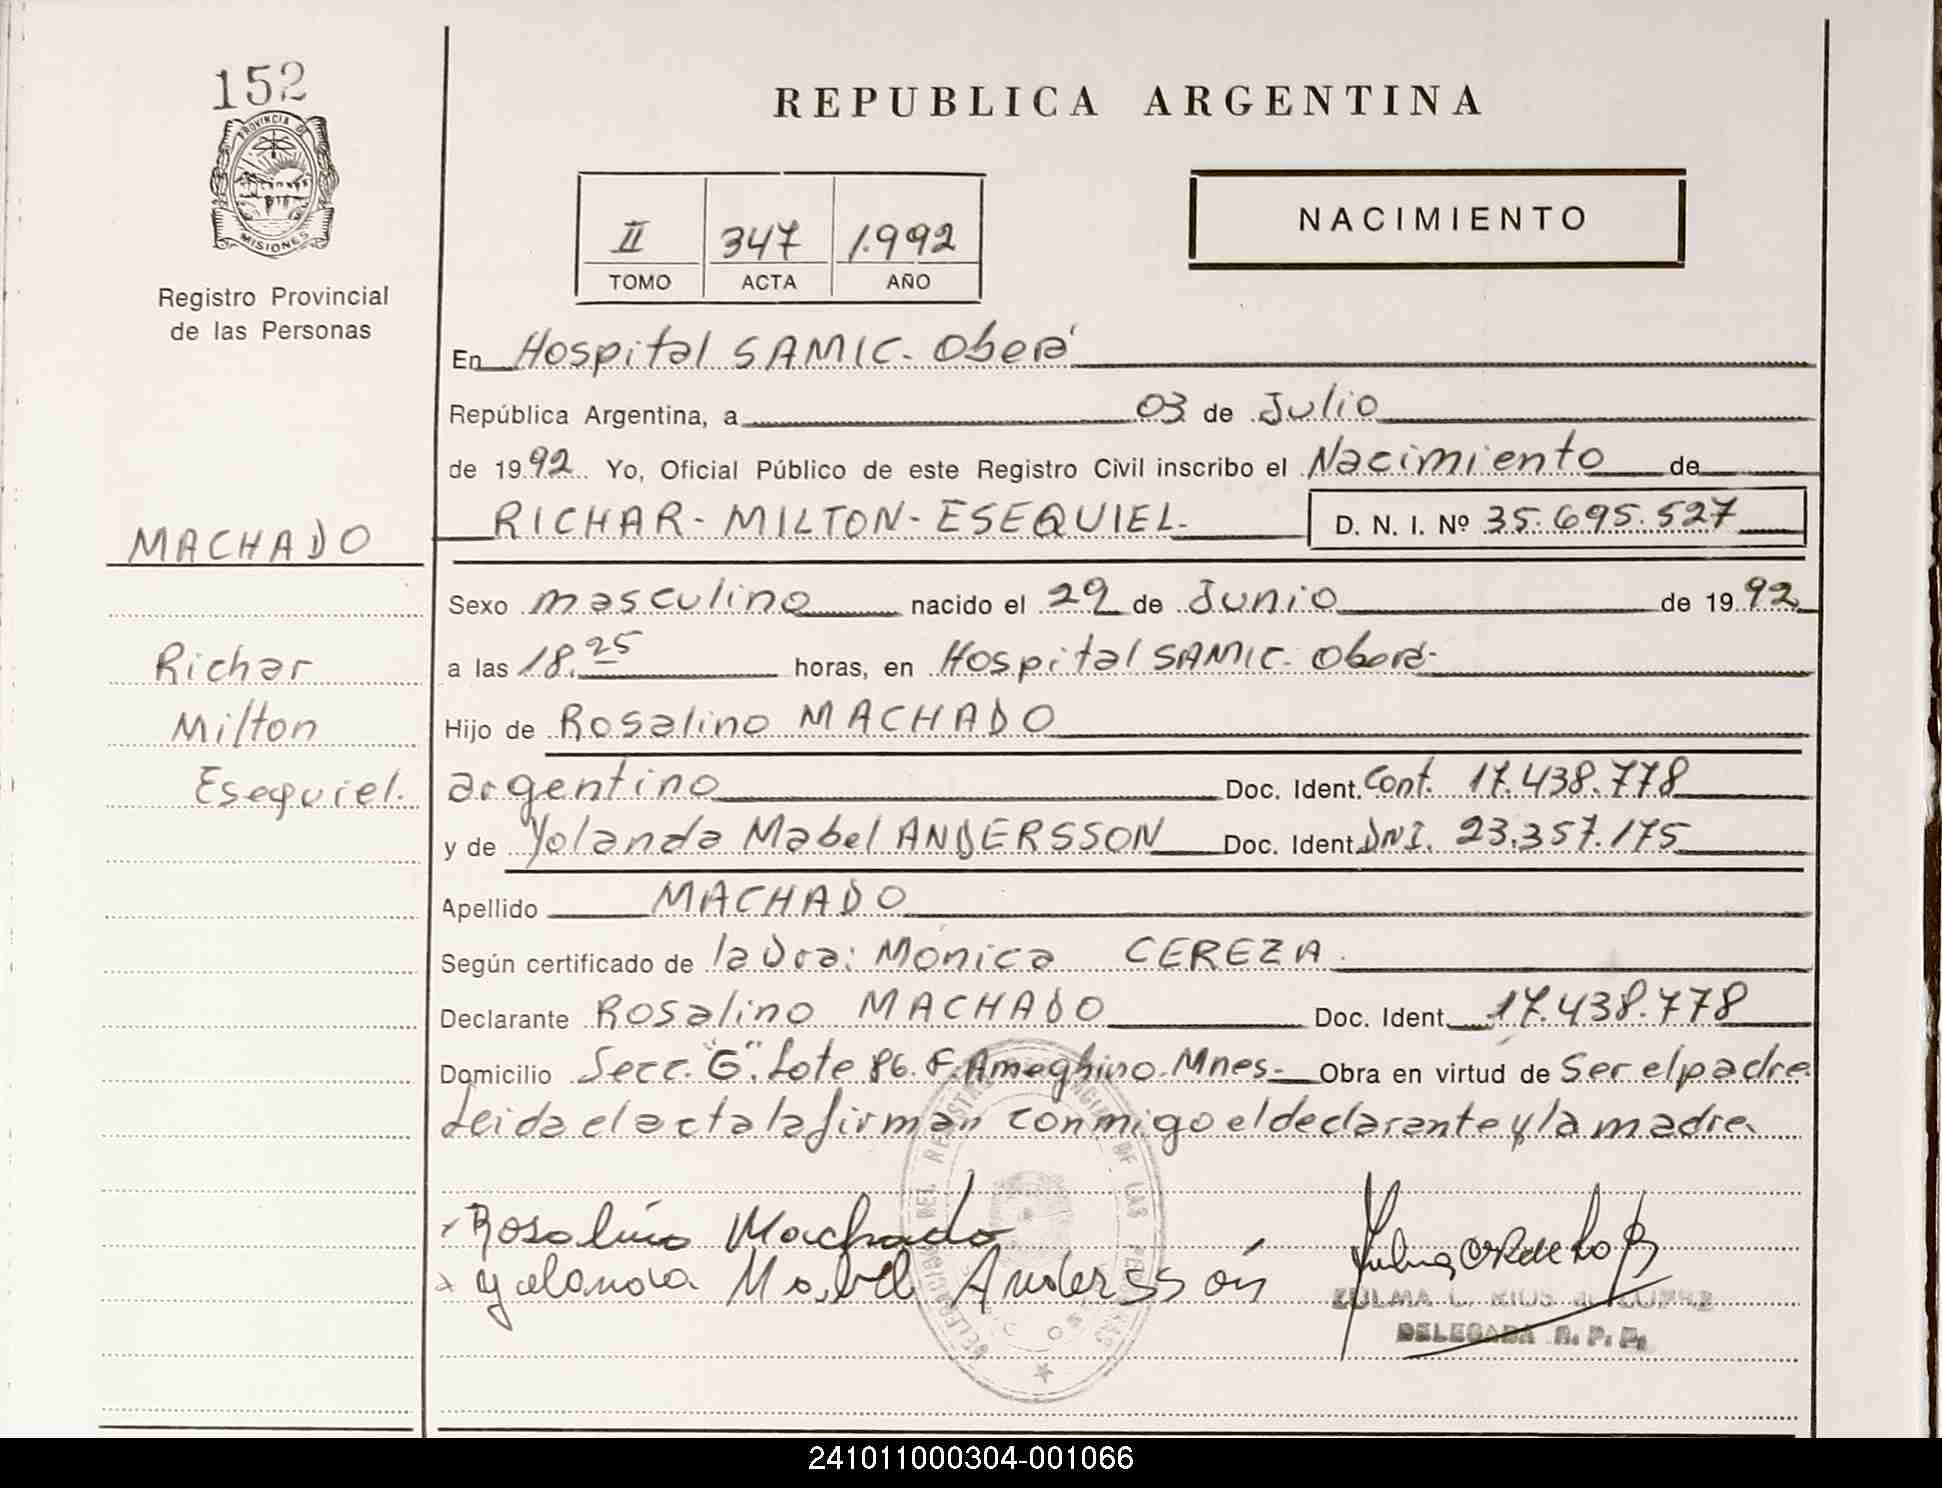 152
PROVINCIA DE
MISIONES
Registro Provincial
de las Personas
MACHADO
Richar
Milton
Esequiel.
REPUBLICA ARGENTINA
II 347 1.992
TOMO ACTA AÑO
NACIMIENTO
En Hospital SAMIC. Oberá
República Argentina, a 03 de Julio
de 1992 Yo, Oficial Público de este Registro Civil inscribo el Nacimiento de
RICHAR-MILTON-ESEQUIEL- D. N. I. Nº 35.695.527
Sexo masculino nacido el 29 de Junio de 1992
a las 18.25 horas, en Hospital SAMIC. Oberá-
Hijo de Rosalino MACHADO
argentino Doc. Ident. Cont. 17.438.778
y de Yolanda Mabel ANDERSSON Doc. Ident. DNI. 23.357.175
Apellido MACHADO
Según certificado de la Dra: Mónica CEREZA.
Declarante Rosalino MACHADO Doc. Ident. 17.438.778
Domicilio Secc. "G". Lote 86. F. Ameghino. Mnes- Obra en virtud de Ser el padre
Leida el acta la firman conmigo el declarante y la madre.
Rosalino Machado
Yolanda Mabel Anderssón
ZULMA C. RIOS de
DELEGADA R. P. P.
241011000304-001066